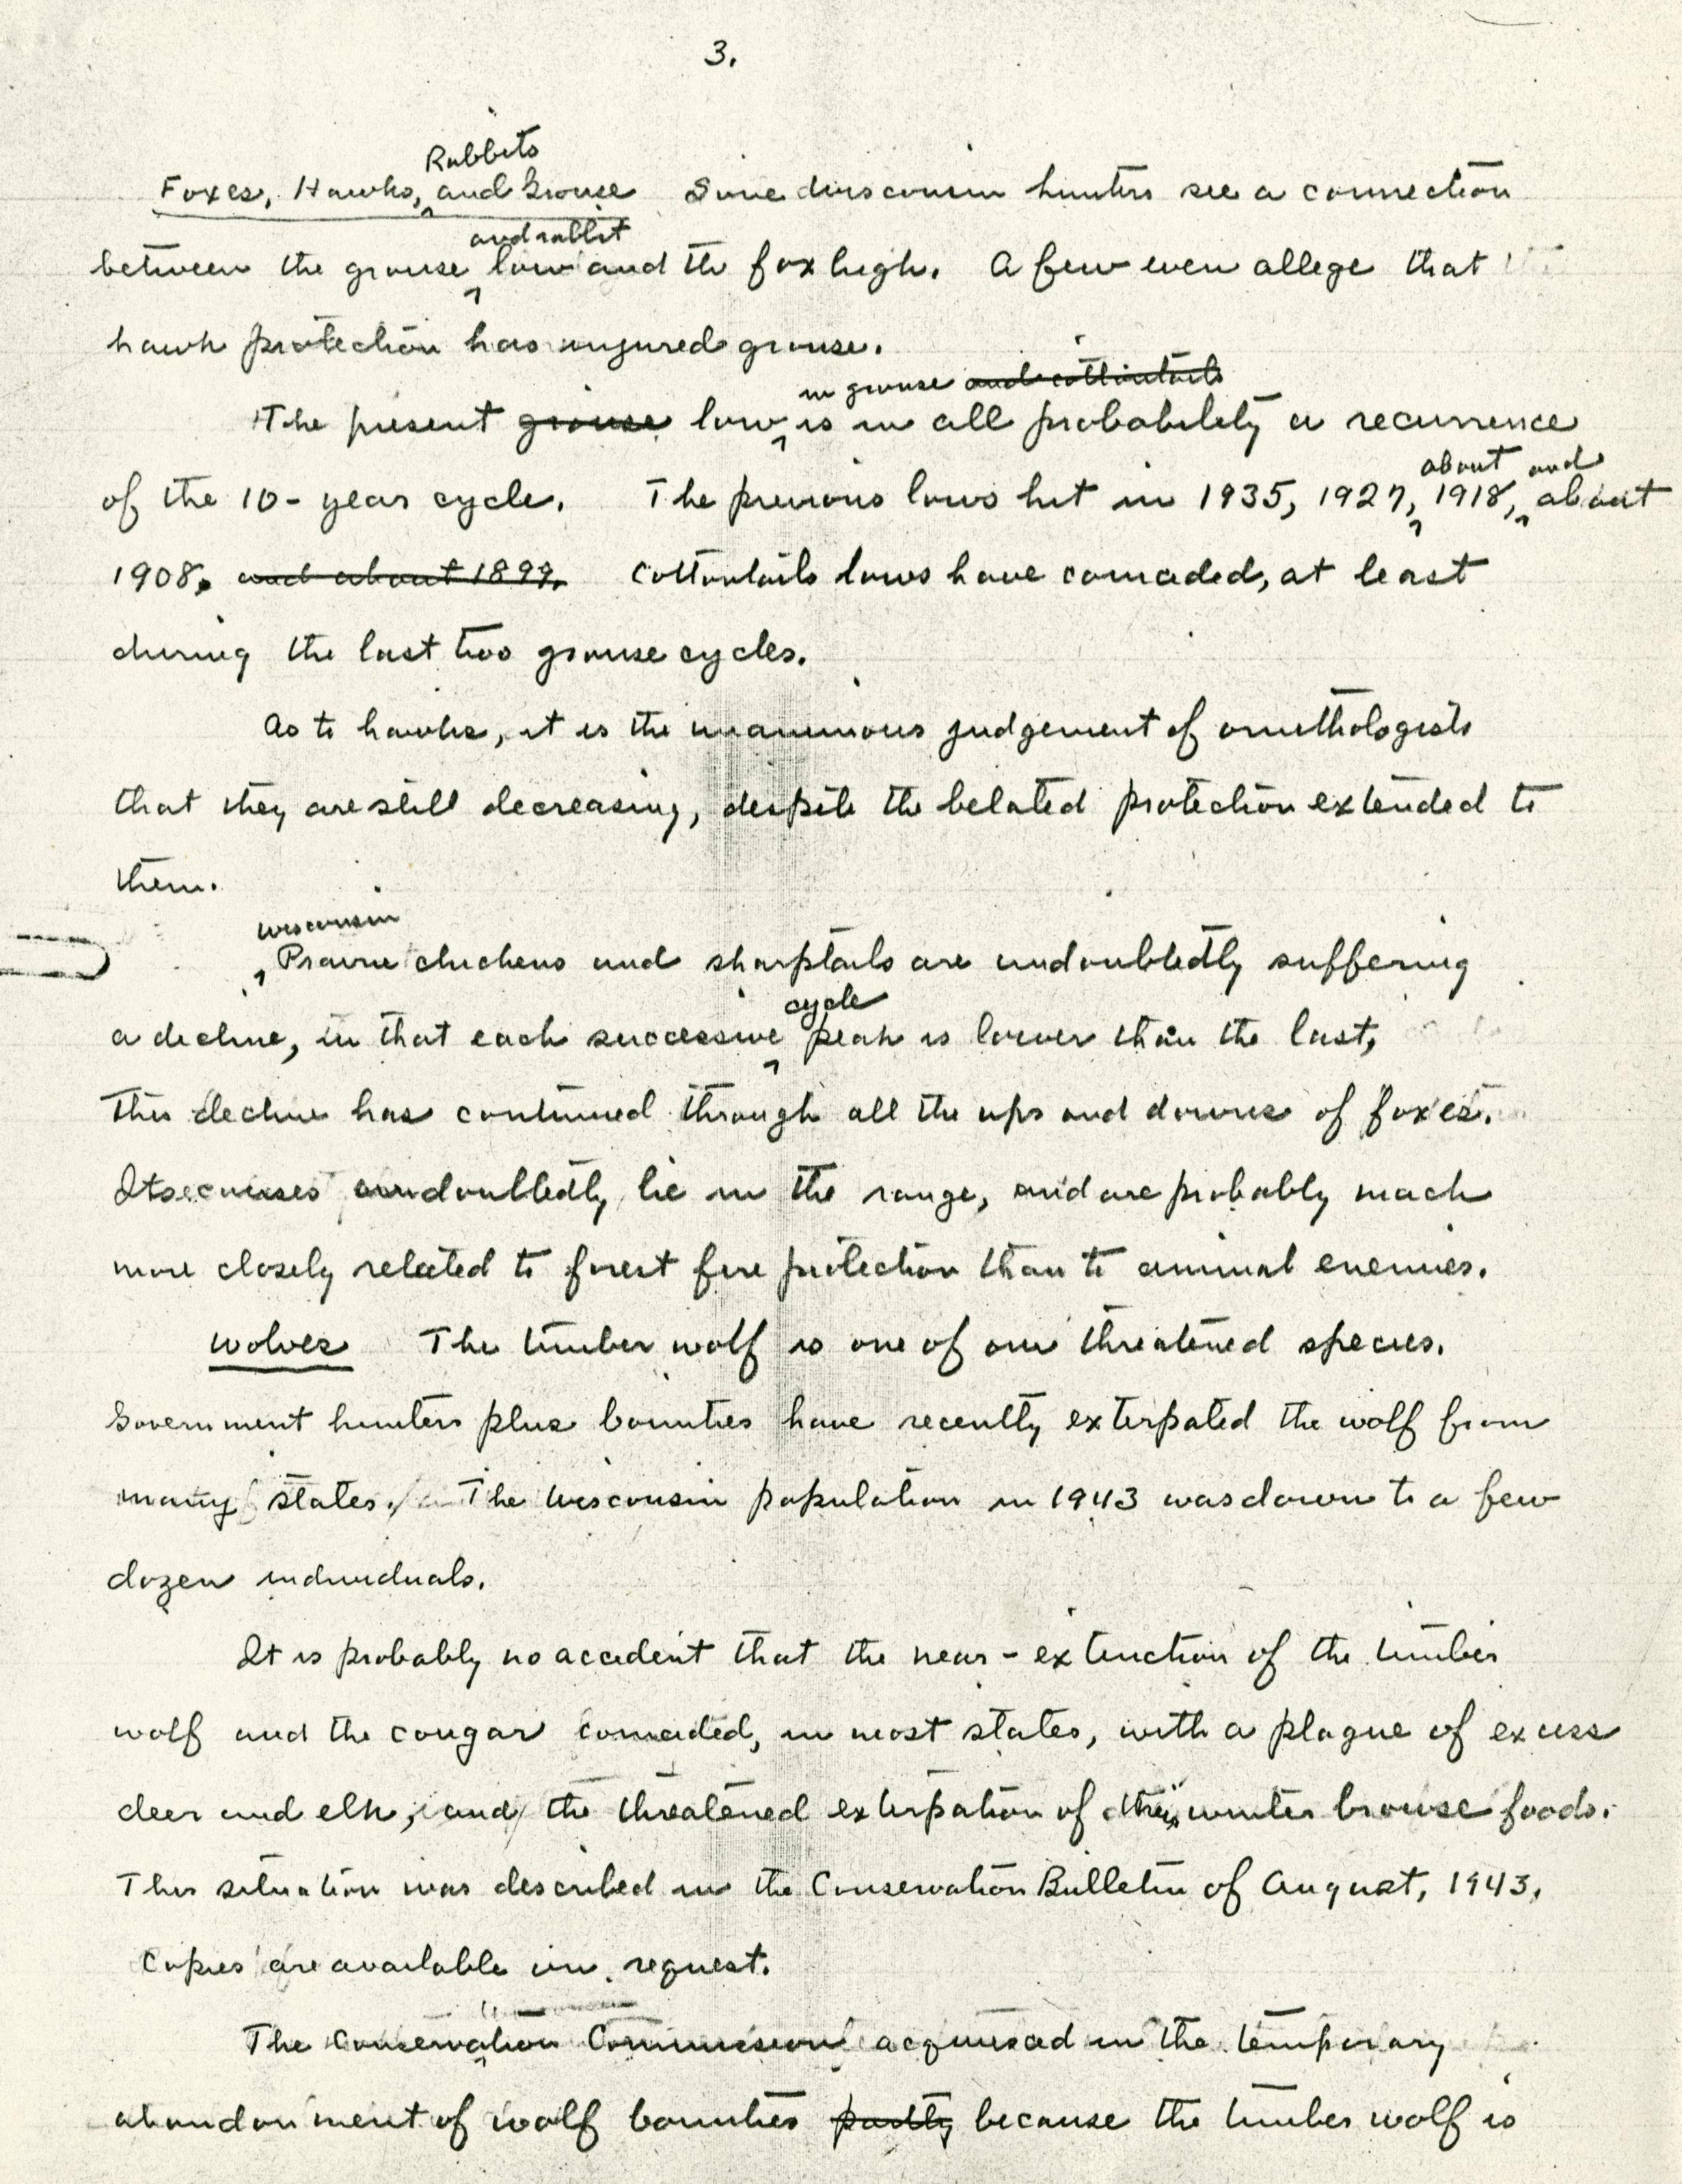 3.
Rabbits
Foxes, Hawks, and Grouse Some Wisconsin hunters see a connection
and rabbit
between the grouse low and the fox high. A few even allege that
hawk protection has injured grouse.
in grouse and cottontails
The present grouse low is in all probability a recurrence
about and
of the 10-year cycle. The previous lows hit in 1935, 1927, 1918, about
1908. and about 1899. Cottontails lows have concided, at least
during the last two grouse cycles.
As to hawks, it is the unanimous judgement of ornithologists
that they are still decreasing, despite the belated protection extended to
them.
Wisconsin
Prairie chickens and sharptails are undoubtedly suffering
cycle
a decline, in that each successive peak is lower than the last,
This decline has continued through all the ups and downs of foxes.
Its causes undoubtedly lie in the range, and are probably much
more closely related to forest fire protection than to animal enemies.
Wolves The timber wolf is one of our threatened species.
Government hunters plus bounties have recently exterpated the wolf from
many states. The Wisconsin population in 1943 was down to a few
dozen individuals.
It is probably no accident that the near-extinction of the timber
wolf and the cougar concided, in most states, with a plague of excess
deer and elk, and the threatened exterpation of their winter browse foods.
This situation was described in the Conservation Bulletin of August, 1943.
Copies are available on request.
The Conservation Commission acquiesced in the temporary
abandonment of wolf bounties partly because the timber wolf is